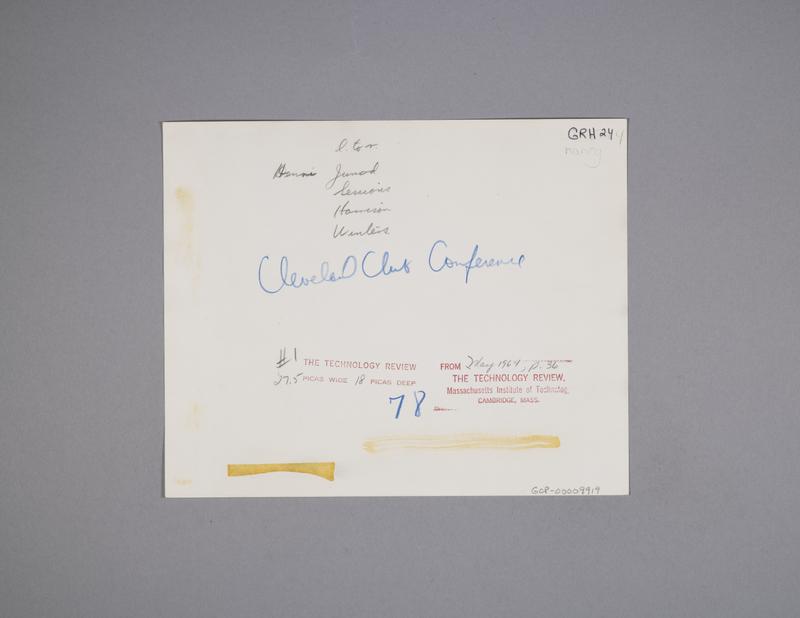 GRH 244
nancy
l. to r.
Henri Junod
Sessions
Harrison
Winters
Cleveland Club Conference
#1 THE TECHNOLOGY REVIEW
27.5 PICAS WIDE 18 PICAS DEEP
FROM May 1964, p. 36
THE TECHNOLOGY REVIEW,
Massachusetts Institute of Technolog,
CAMBRIDGE, MASS.
78
GCP-00009919